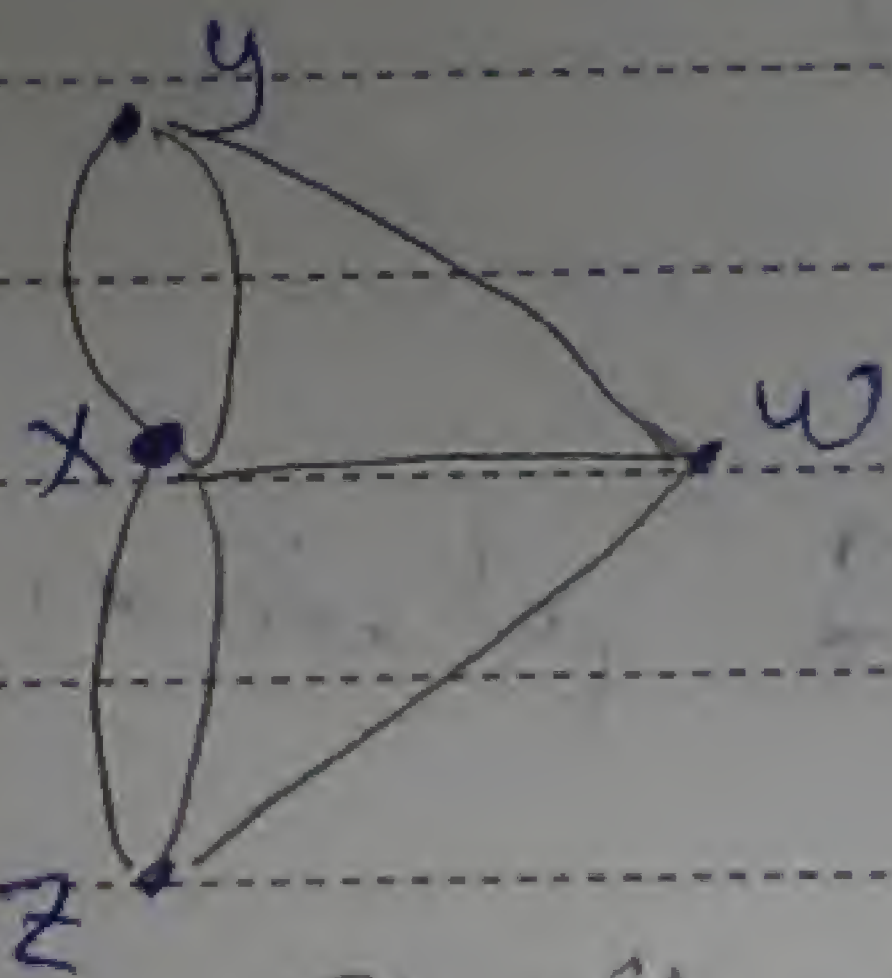 y
X
w
Z